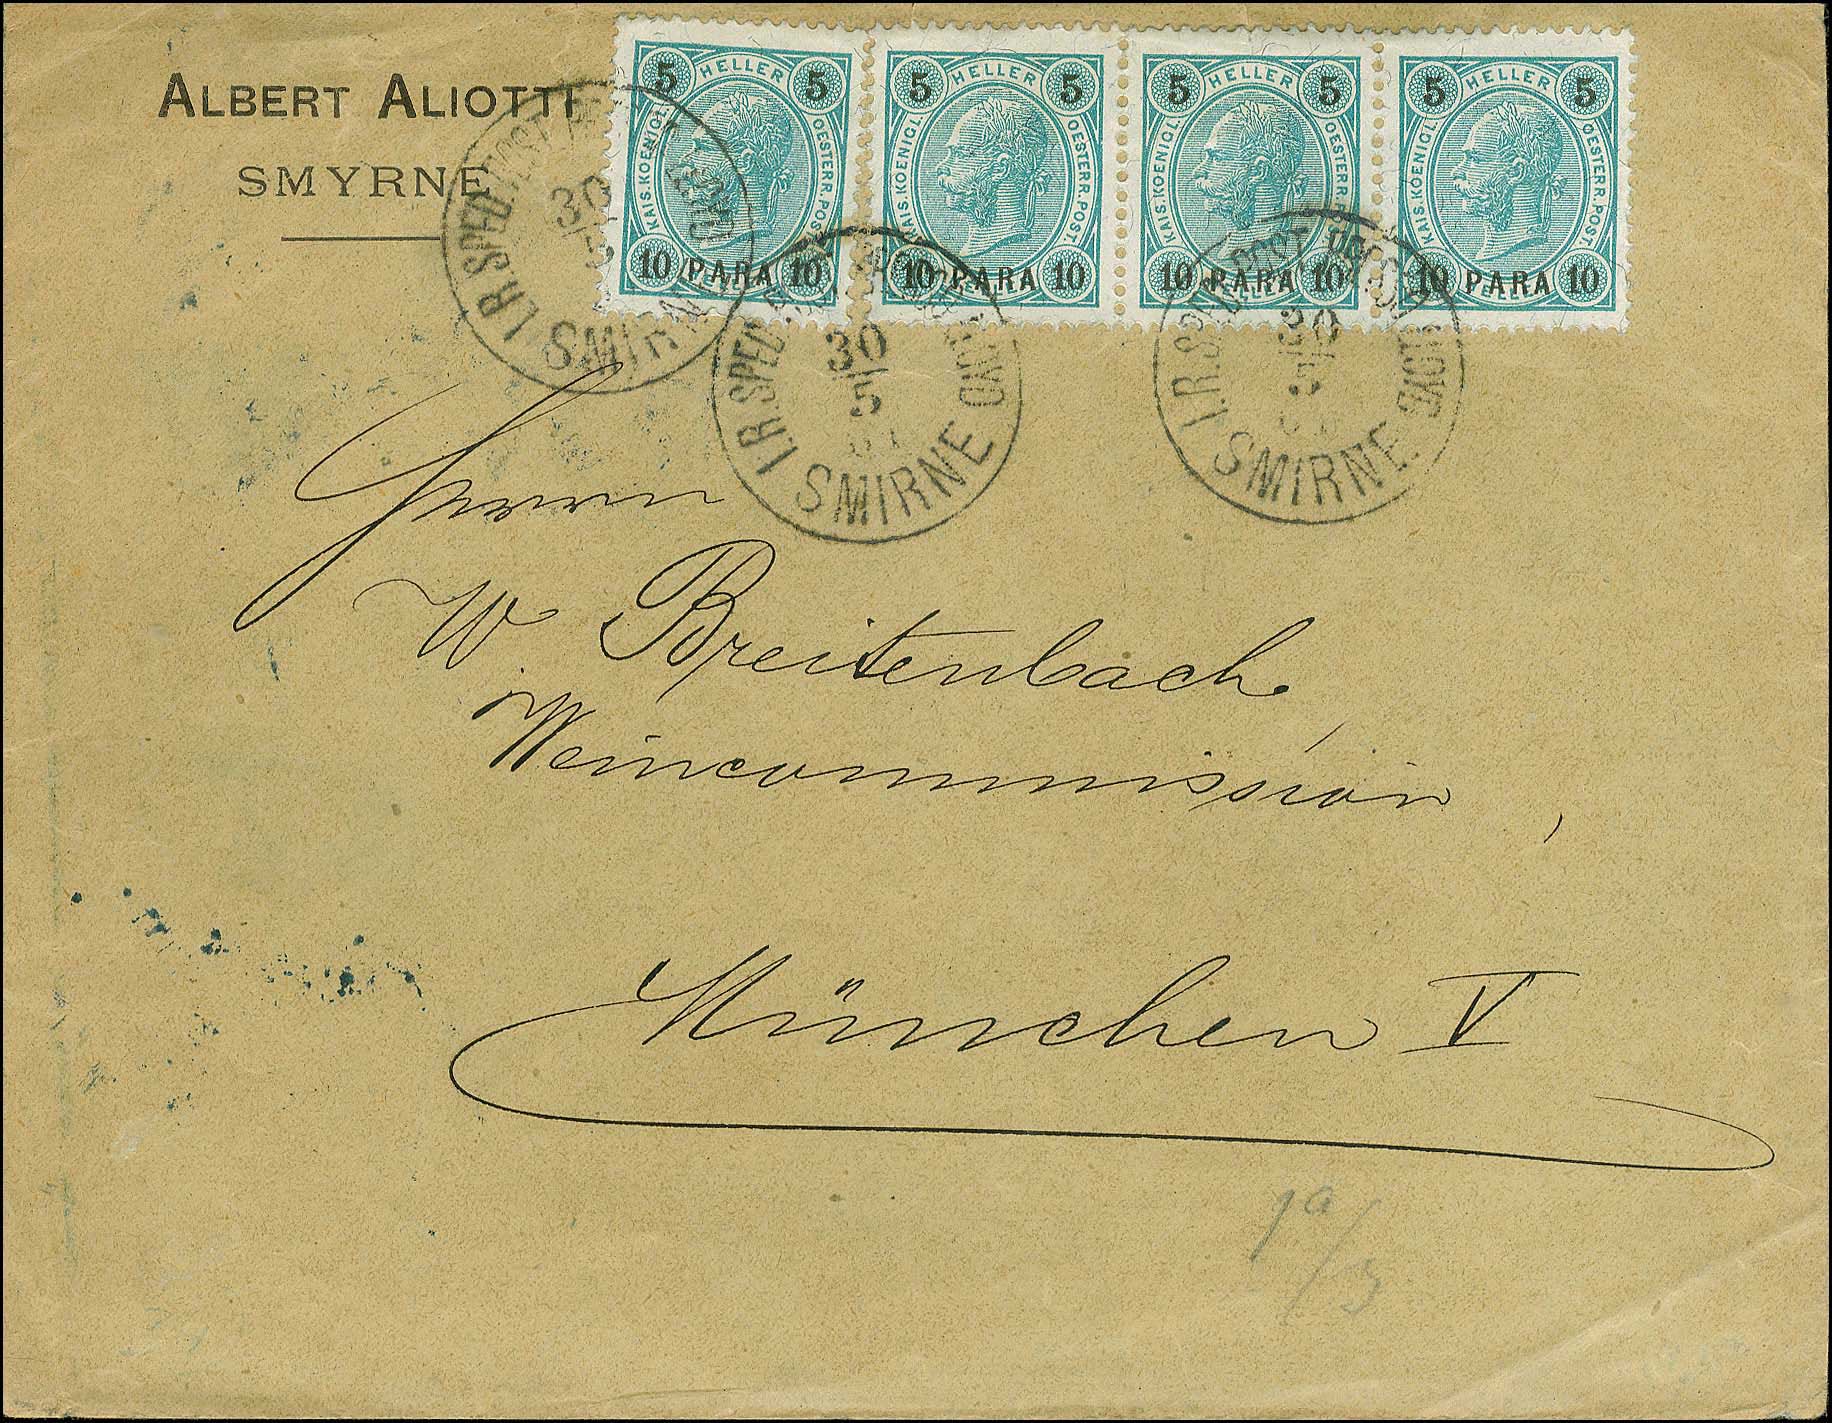 ALBERT ALIOTTI
SMYRNE
5 HELLER 5
KAIS. KOENIGL. OESTERR. POST.
10 PARA 10
5 HELLER 5
KAIS. KOENIGL. OESTERR. POST.
10 PARA 10
5 HELLER 5
KAIS. KOENIGL. OESTERR. POST.
10 PARA 10
5 HELLER 5
KAIS. KOENIGL. OESTERR. POST.
10 PARA 10
I.R. SPED. POST.
30
5
SMIRNE
I.R. SPED.
30
5
SMIRNE
I.R. POST.
30
5
SMIRNE
Herrn
W. Breitenbach,
Weincommission,
München V